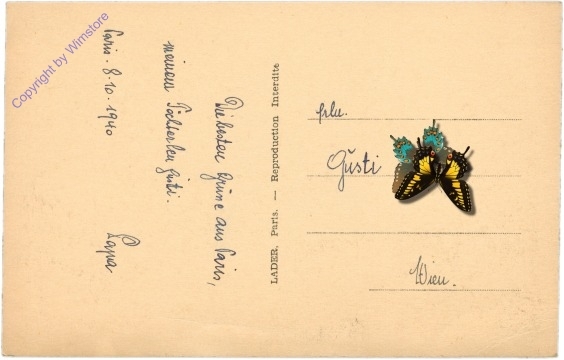 Die besten Grüsse aus Paris,
meinem Töchterlein Gusti.
Paris. 8.10.1940
Papa
LADER, Paris. — Reproduction Interdite
Frln.
Gusti
Wien.
Copyright by Wimstore